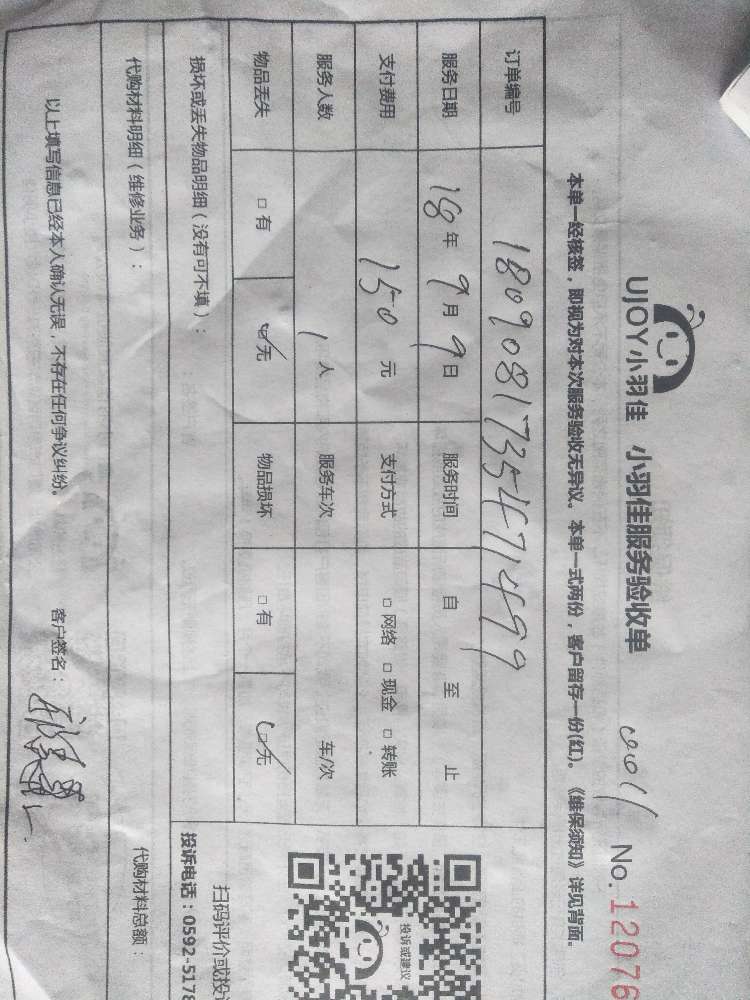 UJOY小羽佳 小羽佳服务验收单 No. 12076
本单一经核签，即视为对本次服务验收无异议。本单一式两份，客户留存一份(红)。《维保须知》详见背面。
订单编号 1809081735471499
服务日期 18年9月9日 服务时间 自 至 止
支付费用 150元 支付方式 □网络 □现金 □转账
服务人数 1人 服务车次 车/次
物品丢失 □有 ☑无 物品损坏 □有 ☑无
投诉或建议
损坏或丢失物品明细（没有可不填）：
扫码评价或投
投诉电话：0592-5178
代购材料明细（维修业务）： 代购材料总额：
以上填写信息已经本人确认无误，不存在任何争议纠纷。 客户签名：